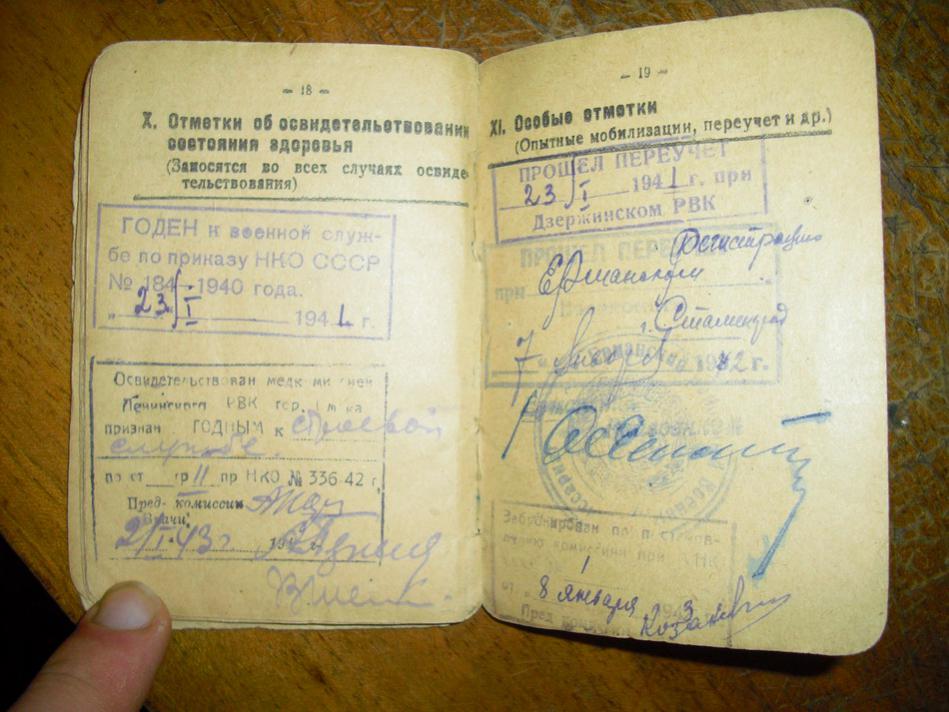 — 18 —
X. Отметки об освидетельствовании
состояния здоровья
(Заносятся во всех случаях освиде-
тельствования)
ГОДЕН к военной служ-
бе по приказу НКО СССР
№ 184-1940 года.
„23/I 1941 г.
Освидетельствован
Ленинского РВК гор.
признан ГОДНЫМ к строевой
службе.
по ст гр II пр НКО № 336-42 г.
Пред. комиссии
Врачи:
2/I-43
— 19 —
XI. Особые отметки
(Опытные мобилизации, переучет и др.)
ПРОШЕЛ ПЕРЕУЧЕТ
23/I 1941 г. при
Дзержинском РВК
ПРОШЕЛ регистрацию
при Ерманском
г. Сталинград
7 1942 г.
Забронирован по
комиссии при
1
от „8 января 1943
Пред